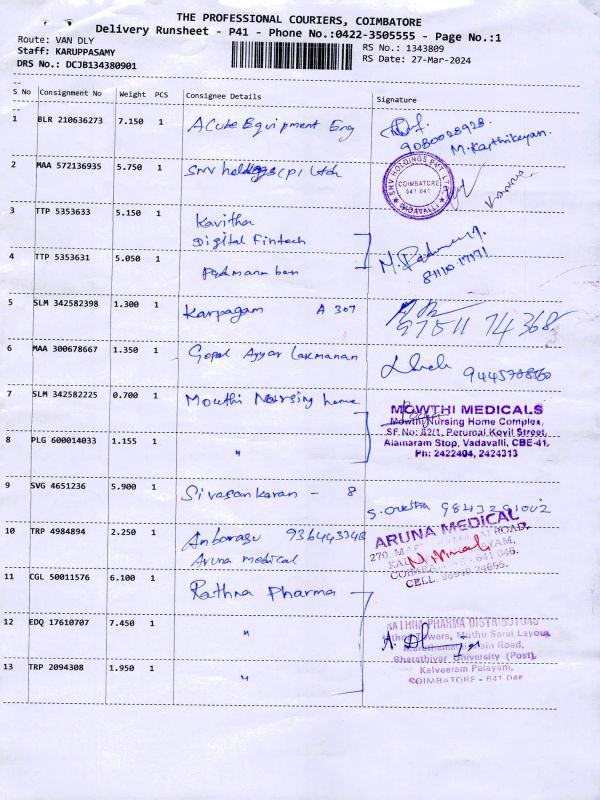 THE PROFESSIONAL COURIERS, COIMBATORE
Delivery Runsheet - P41 - Phone No.:0422-3505555 - Page No.:1
Route: VAN DLY
Staff: KARUPPASAMY
DRS No.: DCJB134380901
RS No.: 1343809
RS Date: 27-Mar-2024
S No Consignment No Weight PCS Consignee Details Signature
1 BLR 210636273 7.150 1 ACube Equipment Eng
9080028928
M.Karthikeyan.
2 MAA 572136935 5.750 1 SNV holdings (P) Ltd
SNV HOLDINGS PVT LTD
COIMBATORE
641 041
VADAVALLI
3 TTP 5353633 5.150 1 Kavitha
Digital Fintech
4 TTP 5353631 5.050 1 Padmanaban
81110 17171
5 SLM 342582398 1.300 1 Karpagam A 307
97511 74368
6 MAA 300678667 1.350 1 Gopal Ayyar Laxmanan
7 SLM 342582225 0.700 1 Mowthi Nursing home
MOWTHI MEDICALS
Mowthi Nursing Home Complex,
SF No: 82/1, Perumal Kovil Street,
Alamaram Stop, Vadavalli, CBE-41,
Ph: 2422404, 2424313
8 PLG 600014033 1.155 1 "
9 SVG 4651236 5.900 1 Sivasankaran - 8
10 TRP 4984894 2.250 1 Anbarasu 936443343
Aruna medical
ARUNA MEDICAL
ROAD,
641 046.
CELL:
11 CGL 50011576 6.100 1 Rathna Pharma
12 EDQ 17610707 7.450 1 "
RATHNA PHARMA DISTRIBUTORS
Towers, Muthu Sarai Layout,
Main Road,
Bharathiyar University (Post),
Kalveeram Palayam,
COIMBATORE - 641 046
13 TRP 2094308 1.950 1 "